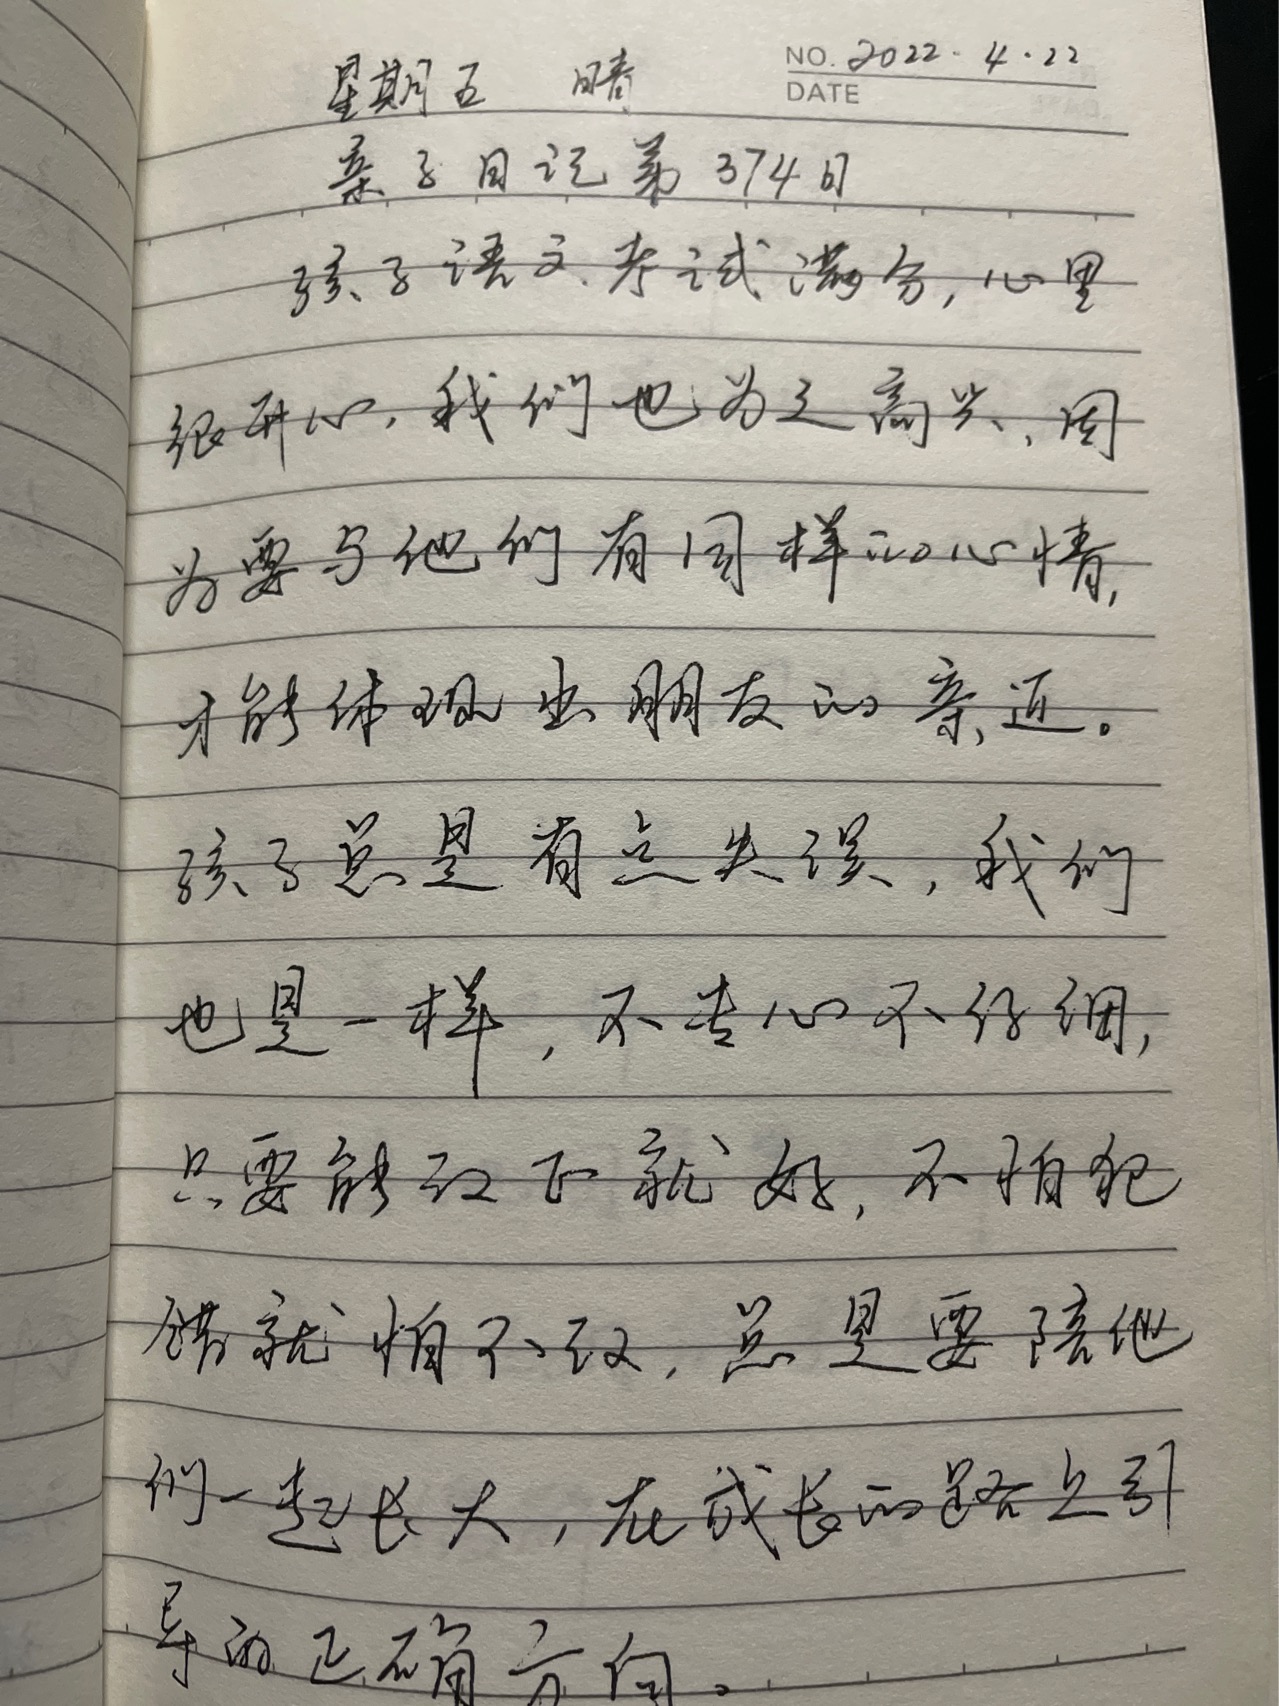 NO. 2022.4.22
星期五 晴
DATE
亲子日记第374日
孩子语文考试满分,心里
很开心,我们也为之高兴,因
为要与他们有同样的心情,
才能体现出朋友的亲近。
孩子总是有点失误,我们
也是一样,不专心不仔细,
只要能改正就好,不怕犯
错就怕不改,总是要陪他
们一起长大,在成长的路上引
导的正确方向。